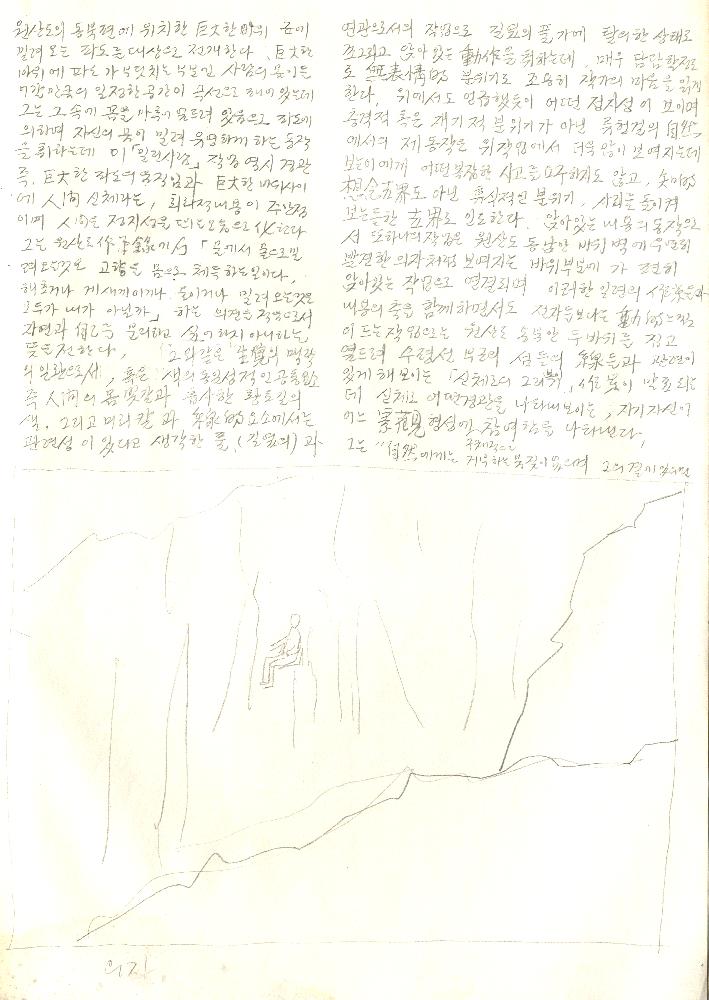 원산도의 동북편에 위치한 巨大한 바위 군에
밀려오는 파도를 대상으로 전개한다. 巨大한
바위에 파도가 부딪치는 부분인 사람의 몸이든
어항만큼의 일정한 공간이 곡선으로 패여 있는데
그는 그 속에 몸을 마음껏 있음으로 파도에
의하며 자신의 몸이 밀려 유영하게 하는 동작
을 취하는데 이 「밀려사람」 작업 역시 경관
즉, 巨大한 파도의 움직임과 巨大한 바위사이
에 人間 신체라는, 회화적 내용이 주안점
이며 人間은 정지성을 化한다
그는 원산도作 에서 「물에서 물으로밀
려오는것은 고향을 몸으로 체득하는일이다.
해초거나 게새끼이거나 돌이거나 밀려오는것은
모두가 내가 아닌가」 하는 의견을 작업으로서
자연과 自己를 분리하고 싶어하지 아니하는
뜻을 전한다. 그와같은 맥락
의 일환으로써, 혹은 색의 동일성적인 공통요소
즉 人間의 몸빛깔과 유사한 황토길의
색. 그리고 머리칼과 線的 요소에서는
관련성이 있다고 생각한 풀, (길옆의) 과
연관으로서의 작업으로 길옆의 풀가에 탈의한 상태로
쪼그리고 앉아있는 動作을 취하는데, 매우 담담한정도
로 無表情的 분위기로 조용히 작가의 마음을 읽게
한다. 위에서도 언급했듯이 어떤 정지성이 보이며
충격적 혹은 재기적 분위기가 아닌 自然
에서의 제동작은 위작업에서 더욱 많이 보여지는데
보는이에게 어떤복잡한 사고를 요구하지도 않고, 숫제的
想念世界도 아닌 휴식적인 분위기, 사위를 돌이켜
보는듯한 世界로 인도한다. 앉아있는 내용의 동작으로
서 또하나의작업은 원산도 동남안 바위벽에 우연히
발견한 의자처럼 보여지는 바위부분에 가 편히
앉아있는 작업으로 연결되며 이러한 일련의 作業들과
내용의 축을 함께하면서도 선자들보다는 動的느낌
이 드는작업으로는 원산도 동북안 두바위를 짚고
엎드려 수평선 부근의 섬들의 線들과 관련이
있게 해보이는 「신체로의 그리기」, 作業이 발표되는
데 신체로 어떤경관을 나타내보이는, 자기자신이
어느 景觀형성에 참여함을 나타낸다.
그는 "自然에게는 거역하는 몸짓이 없으며 그의 곁에
의자